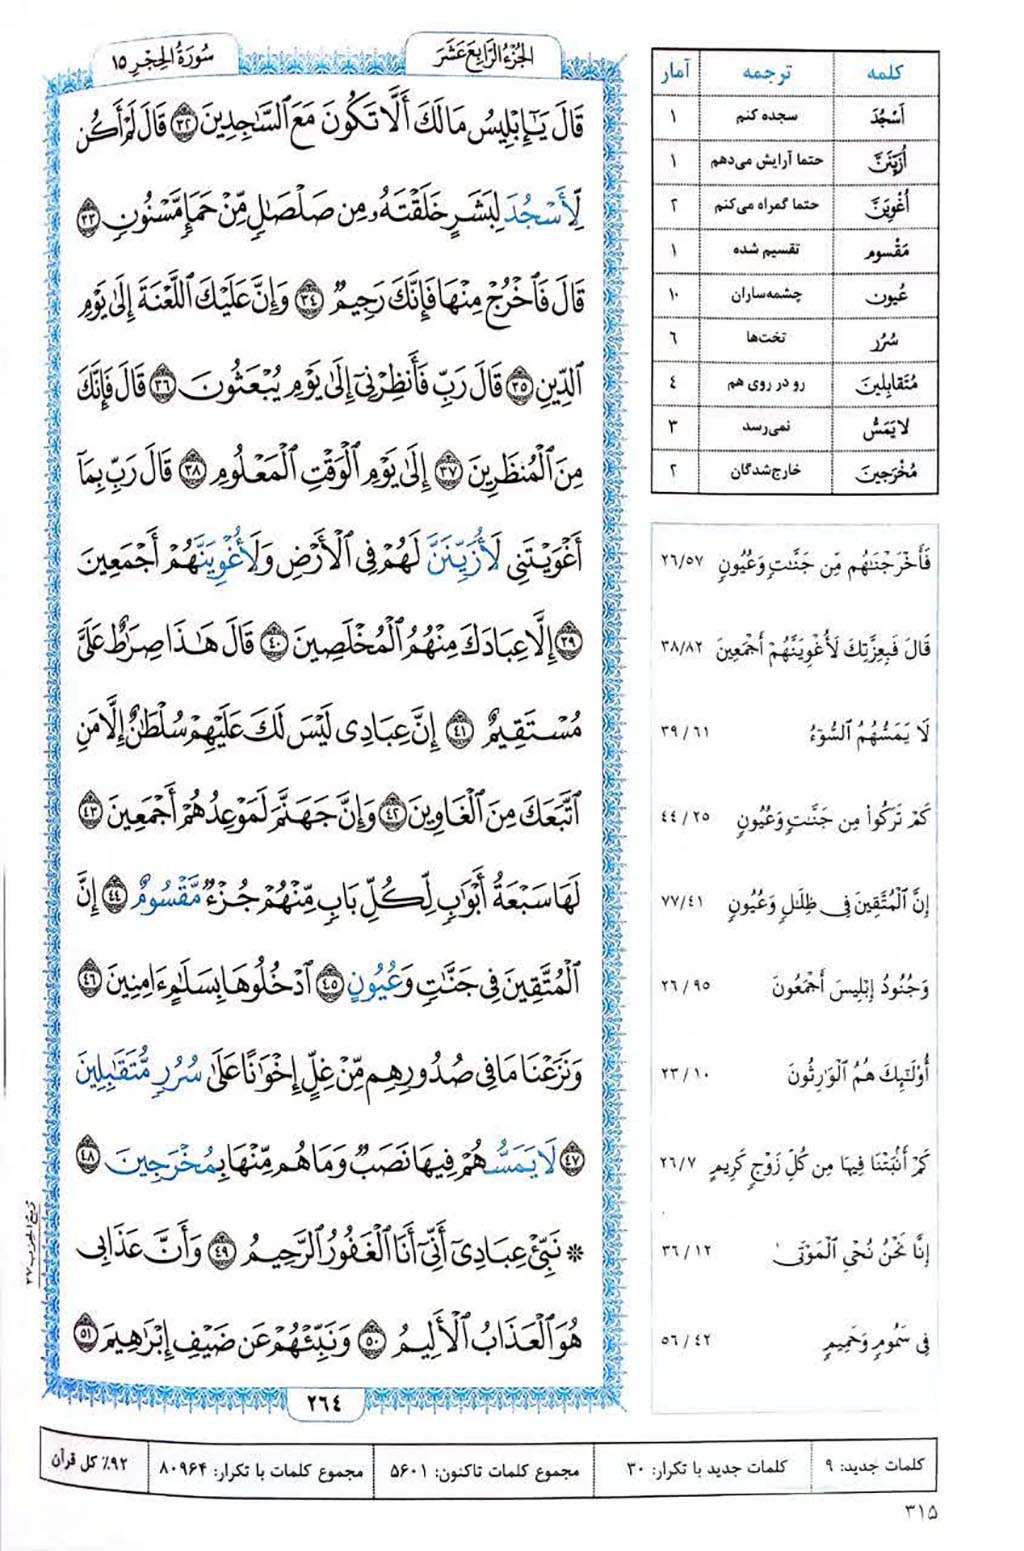 الجُزءُ الرَّابِعَ عَشَرَ
سُورَةُ الحِجْرِ ١٥
قَالَ يَٰٓإِبْلِيسُ مَا لَكَ أَلَّا تَكُونَ مَعَ ٱلسَّٰجِدِينَ ٣٢ قَالَ لَمْ أَكُن
لِّأَسْجُدَ لِبَشَرٍ خَلَقْتَهُۥ مِن صَلْصَٰلٍ مِّنْ حَمَإٍ مَّسْنُونٍ ٣٣
قَالَ فَٱخْرُجْ مِنْهَا فَإِنَّكَ رَجِيمٌ ٣٤ وَإِنَّ عَلَيْكَ ٱللَّعْنَةَ إِلَىٰ يَوْمِ
ٱلدِّينِ ٣٥ قَالَ رَبِّ فَأَنظِرْنِىٓ إِلَىٰ يَوْمِ يُبْعَثُونَ ٣٦ قَالَ فَإِنَّكَ
مِنَ ٱلْمُنظَرِينَ ٣٧ إِلَىٰ يَوْمِ ٱلْوَقْتِ ٱلْمَعْلُومِ ٣٨ قَالَ رَبِّ بِمَآ
أَغْوَيْتَنِى لَأُزَيِّنَنَّ لَهُمْ فِى ٱلْأَرْضِ وَلَأُغْوِيَنَّهُمْ أَجْمَعِينَ
٣٩ إِلَّا عِبَادَكَ مِنْهُمُ ٱلْمُخْلَصِينَ ٤٠ قَالَ هَٰذَا صِرَٰطٌ عَلَىَّ
مُسْتَقِيمٌ ٤١ إِنَّ عِبَادِى لَيْسَ لَكَ عَلَيْهِمْ سُلْطَٰنٌ إِلَّا مَنِ
ٱتَّبَعَكَ مِنَ ٱلْغَاوِينَ ٤٢ وَإِنَّ جَهَنَّمَ لَمَوْعِدُهُمْ أَجْمَعِينَ ٤٣
لَهَا سَبْعَةُ أَبْوَٰبٍ لِّكُلِّ بَابٍ مِّنْهُمْ جُزْءٌ مَّقْسُومٌ ٤٤ إِنَّ
ٱلْمُتَّقِينَ فِى جَنَّٰتٍ وَعُيُونٍ ٤٥ ٱدْخُلُوهَا بِسَلَٰمٍ ءَامِنِينَ ٤٦
وَنَزَعْنَا مَا فِى صُدُورِهِم مِّنْ غِلٍّ إِخْوَٰنًا عَلَىٰ سُرُرٍ مُّتَقَٰبِلِينَ
٤٧ لَا يَمَسُّهُمْ فِيهَا نَصَبٌ وَمَا هُم مِّنْهَا بِمُخْرَجِينَ ٤٨
۞ نَبِّئْ عِبَادِىٓ أَنِّىٓ أَنَا ٱلْغَفُورُ ٱلرَّحِيمُ ٤٩ وَأَنَّ عَذَابِى
هُوَ ٱلْعَذَابُ ٱلْأَلِيمُ ٥٠ وَنَبِّئْهُمْ عَن ضَيْفِ إِبْرَٰهِيمَ ٥١
٢٦٤
رُبعُ الحِزب ٢٧
کلمه ترجمه آمار
أَسْجُدَ سجده کنم ۱
أُزَيِّنَنَّ حتما آرایش می‌دهم ۱
أُغْوِيَنَّ حتما گمراه می‌کنم ۲
مَقْسوم تقسیم شده ۱
عُيون چشمه‌ساران ۱۰
سُرُر تخت‌ها ۶
مُتَقابِلينَ رو در روی هم ٤
لا يَمَسُّ نمی‌رسد ۳
مُخْرَجينَ خارج‌شدگان ۲
فَأَخْرَجْنَٰهُم مِّن جَنَّٰتٍ وَعُيُونٍ ٢٦/٥٧
قَالَ فَبِعِزَّتِكَ لَأُغْوِيَنَّهُمْ أَجْمَعِينَ ٣٨/٨٢
لَا يَمَسُّهُمُ ٱلسُّوٓءُ ٣٩/٦١
كَمْ تَرَكُوا۟ مِن جَنَّٰتٍ وَعُيُونٍ ٤٤/٢٥
إِنَّ ٱلْمُتَّقِينَ فِى ظِلَٰلٍ وَعُيُونٍ ٧٧/٤١
وَجُنُودُ إِبْلِيسَ أَجْمَعُونَ ٢٦/٩٥
أُو۟لَٰٓئِكَ هُمُ ٱلْوَٰرِثُونَ ٢٣/١٠
كَمْ أَنۢبَتْنَا فِيهَا مِن كُلِّ زَوْجٍ كَرِيمٍ ٢٦/٧
إِنَّا نَحْنُ نُحْىِ ٱلْمَوْتَىٰ ٣٦/١٢
فِى سَمُومٍ وَحَمِيمٍ ٥٦/٤٢
کلمات جدید: ۹ کلمات جدید با تکرار: ۳۰ مجموع کلمات تاکنون: ۵۶۰۱ مجموع کلمات با تکرار: ۸۰۹۶۴ ۹۲٪ کل قرآن
۳۱۵